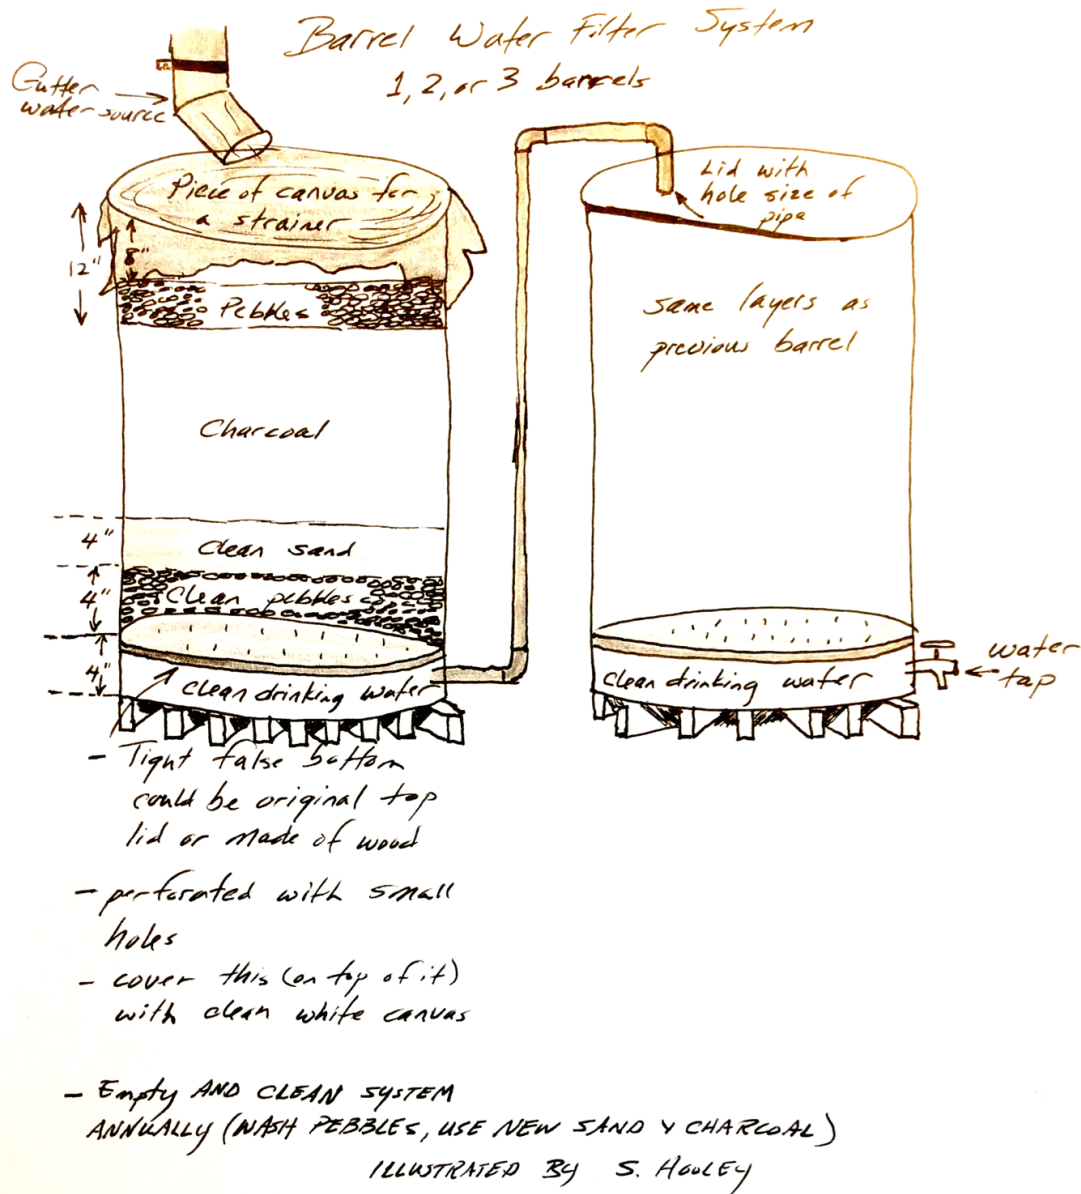 Barrel Water Filter System
1, 2, or 3 barrels
Gutter
water source
Piece of canvas for
a strainer
12"
8"
Pebbles
Charcoal
4"
Clean sand
4"
Clean pebbles
4"
clean drinking water
Lid with
hole size of
pipe
same layers as
previous barrel
clean drinking water
water
tap
- Tight false bottom
could be original top
lid or made of wood
- perforated with small
holes
- cover this (on top of it)
with clean white canvas
- Empty AND CLEAN SYSTEM
ANNUALLY (WASH PEBBLES, USE NEW SAND & CHARCOAL)
ILLUSTRATED BY S. HOOLEY